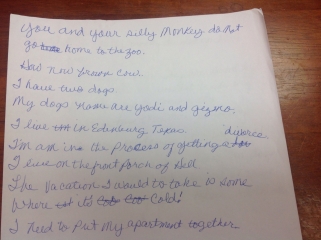 You and your silly Monkey do not
go home to the zoo.
Has now brown cow.
I have two dogs.
My dogs name are yodi and gizmo.
I live in Edinburg Texas.
I'm am in the process of getting a divorce
I live on the front porch of Hell
The vacation I would to take is some
where its cold!
I need to put my apartment together